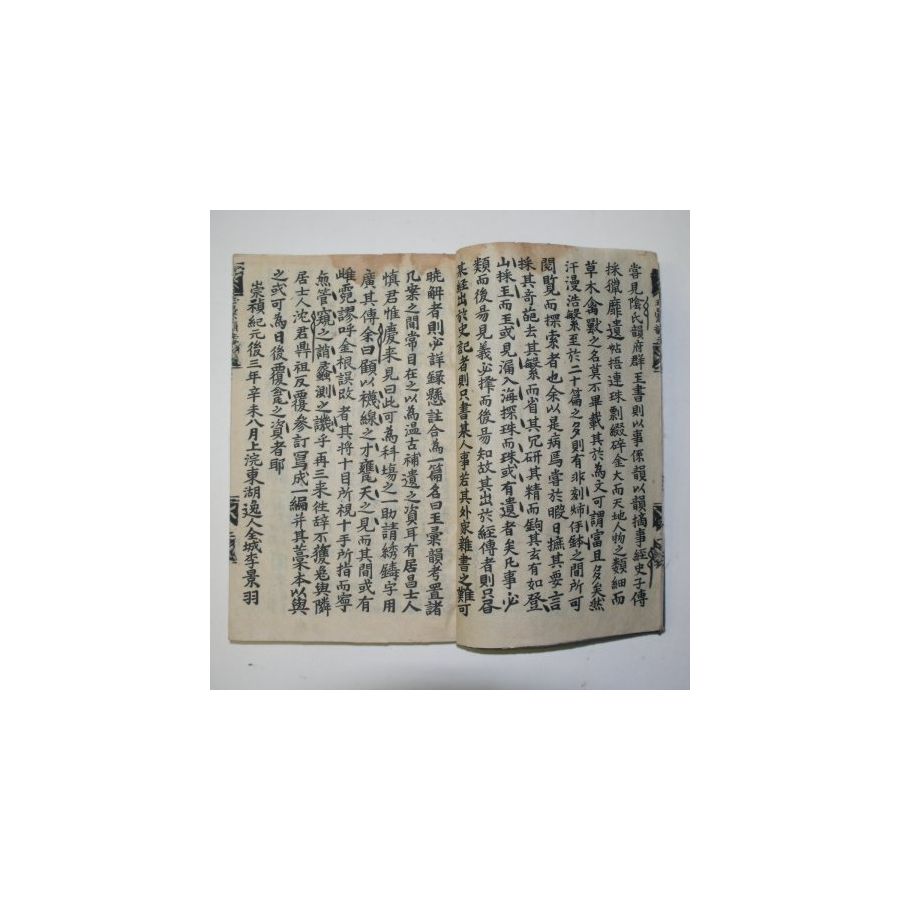 嘗見陰氏韻府群玉書則以事係韻以韻摘事經史子傳
採獵靡遺帖捂連珠剽綴碎金大而天地人物之類細而
草木禽獸之名莫不畢載其於為文可謂富且多矣然
汗漫浩繁至於二十篇之多則有非刻燭俘鉢之間所可
閱覽而探索者也余以是病焉嘗於暇日摭其要言
採其奇葩去其繁而省其冗研其精而鉤其玄有如登
山採玉而玉或見漏入海探珠而珠或有遺者矣凡事必
類而後昜見義必擇而後昜知故其出於經傳者則只曰
某經出於史記者則只書某人事若其外家雜書之難可
曉解者則必詳録懸註合為一篇名曰玉彙韻考置諸
几案之間常目在之以為温古補遺之資耳有居昌士人
慎君惟慶来見曰此可為科塲之一助請綉鏻字用
廣其傳余曰顧以襪線之才甕天之見而其間或有
雌霓謬呼金根誤改者其將十目所視十手所指而寧
無管窺之誚蠡測之譏乎再三来徃辞不獲免與隣
居士人沈君鼎祖反覆參訂寫成一編并其藁本以與
之或可為日後覆瓮之資者耶
崇禎紀元後三年辛未八月上浣東湖逸人全城李景羽